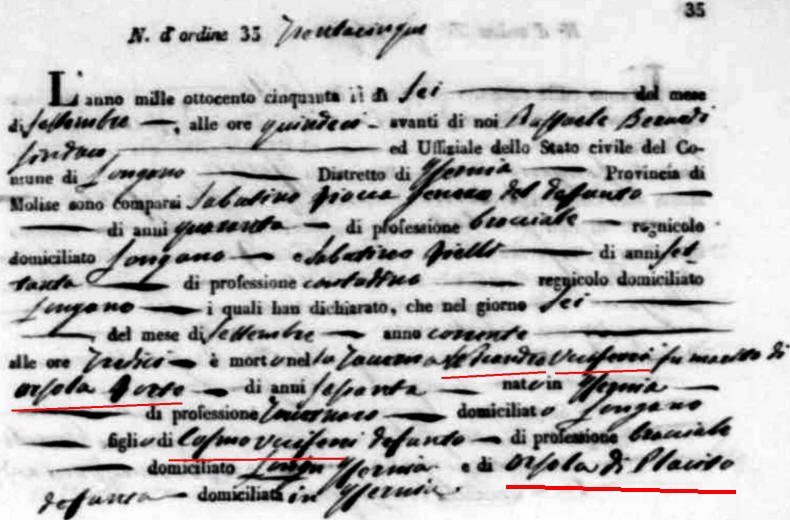 35
N. d'ordine 35 trentacinque
L'anno mille ottocento cinquanta il dì sei del mese
di Settembre, alle ore quindici avanti di noi Raffaele Berardi
Sindaco ed Uffiziale dello Stato civile del Co-
mune di Longano Distretto di Isernia Provincia di
Molise sono comparsi Sabatino Genero del defunto
di anni quaranta di professione bracciale regnicolo
domiciliato Longano e Sabatino di anni set-
tanta di professione contadino regnicolo domiciliato
Longano i quali han dichiarato, che nel giorno sei
del mese di Settembre anno corrente
alle ore tredici è morto nella Taverna fu marito di
Orsola di anni sessanta nato in Isernia
di professione Tavernaro domiciliato Longano
figlio di Cosmo defunto di professione bracciale
domiciliato Isernia e di Orsola di Placito
defunta domiciliata in Isernia.